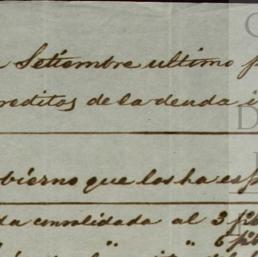 Setiembre ultimo p
reditos de la deuda i
bierno que los ha es
da consolidada al 3 p%
" " 6 p%